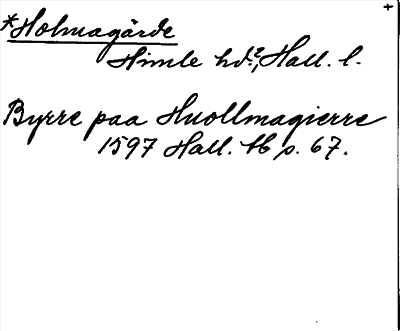 *Holmagärde
Himle hd?, Hall. l.
Byrre paa Huollmagierre
1597 Hall. 16 p. 67.